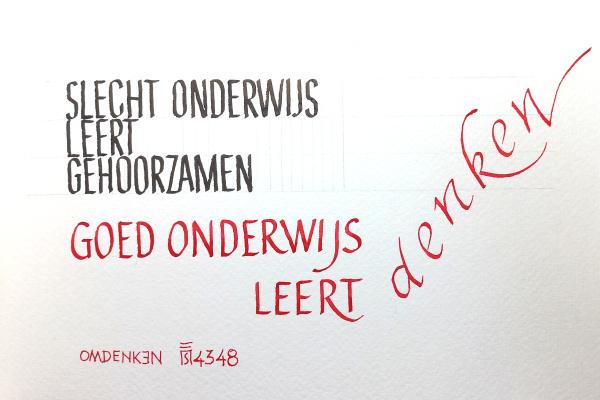 SLECHT ONDERWIJS
LEERT
GEHOORZAMEN
GOED ONDERWIJS
LEERT
denken
OMDENKEN 4348